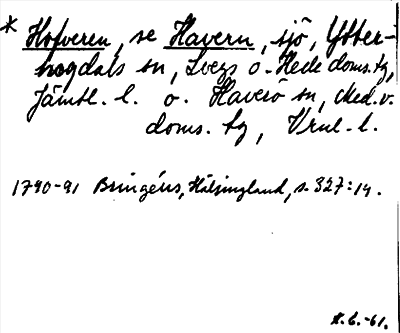 * Hofveren, se Havern, sjö, Ytter-
hogdals sn, Svegs o. Hede doms. tg,
Jämtl. l. o. Haverö sn, Med. v.
doms. tg, Vrnl. l.
1790-91 Bringéus, Hälsingland, s. 327:14.